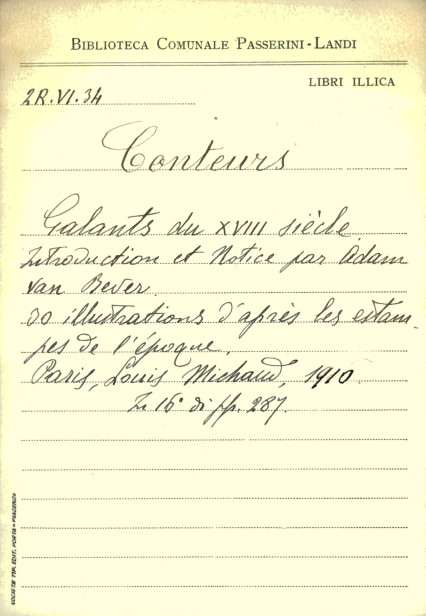 BIBLIOTECA COMUNALE PASSERINI-LANDI
LIBRI ILLICA
2R.VI.34
Conteurs
Galants du XVIII siècle
Introduction et Notice par Adam
van Bever
30 illustrations d'après les estam-
pes de l'époque.
Paris, Louis Michaud, 1910
In 16° di pp. 287.
SOCIETÀ TIP. EDIT. PORTA - PIACENZA